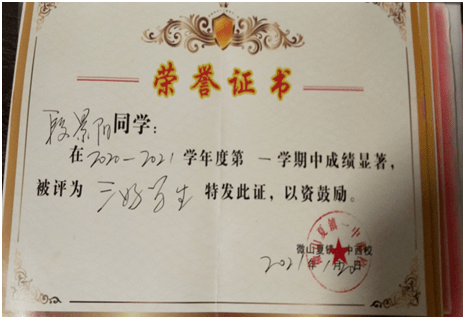 荣誉证书
段景阳同学：
在2020-2021学年度第一学期中成绩显著，
被评为三好学生特发此证，以资鼓励。
微山夏镇一中西校
2021年1月20日